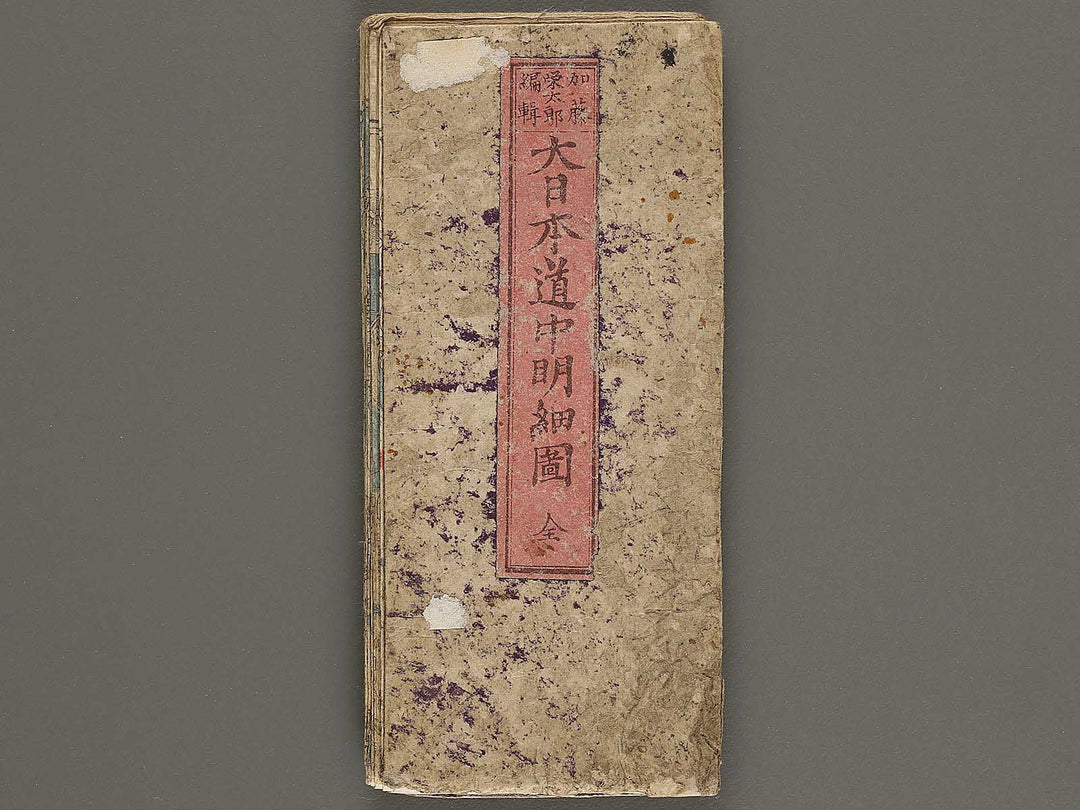 加藤
榮太郎
編輯
大日本道中明細圖 全